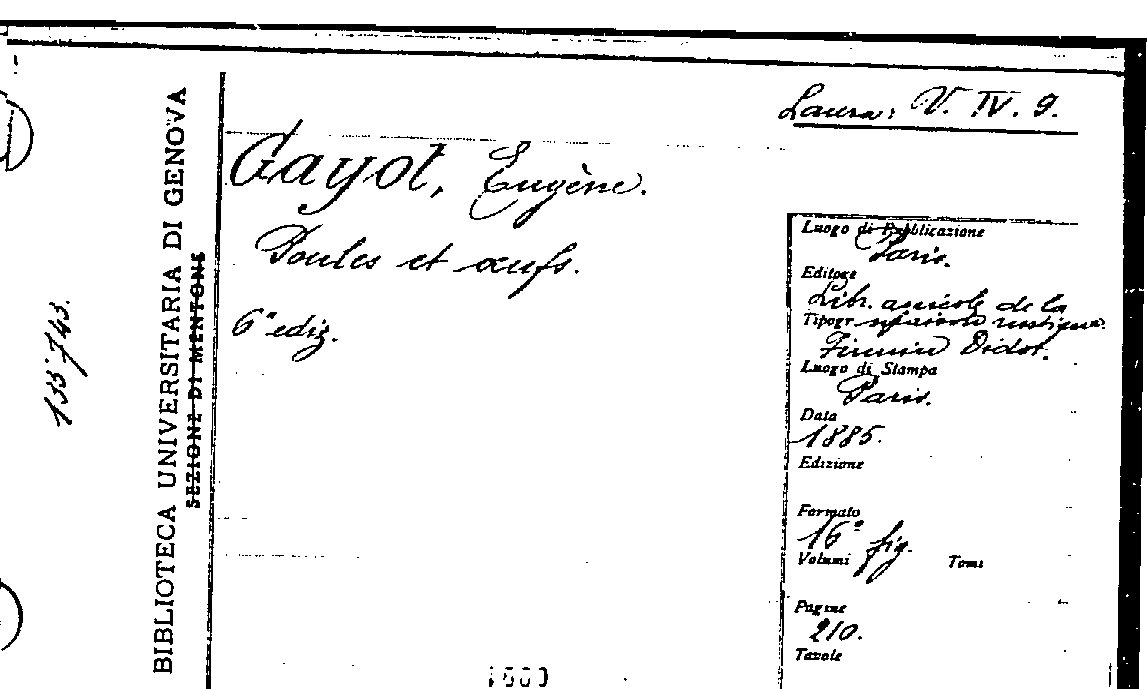 Laura: V. IV. 9.
Gayot, Eugène.
Poules et œufs.
6ª ediz.
Luogo di Pubblicazione
Paris.
Editore
Libr. agricole de la
Tipogr. maison rustique.
Firmin Didot.
Luogo di Stampa
Paris.
Data
1885.
Edizione
Formato
16º fig.
Volumi Tomi
Pagine
210.
Tavole
BIBLIOTECA UNIVERSITARIA DI GENOVA
SEZIONE DI MENTONE
135743.